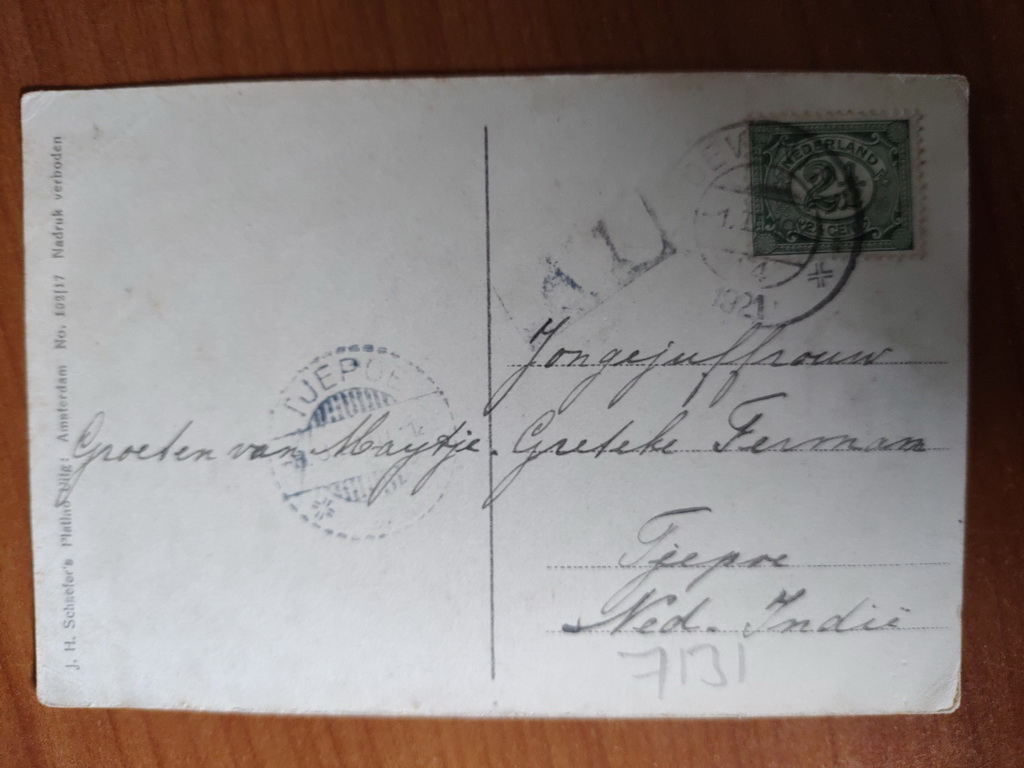 J. H. Schaefer's Platino Uitg: Amsterdam No. 102/17 Nadruk verboden
NEDERLAND
2½
AL
1921
TJEPOE
Jongejuffrouw
Groeten van Maytje. Greteke Fermam
Tjepoe
Ned. Indië
7131